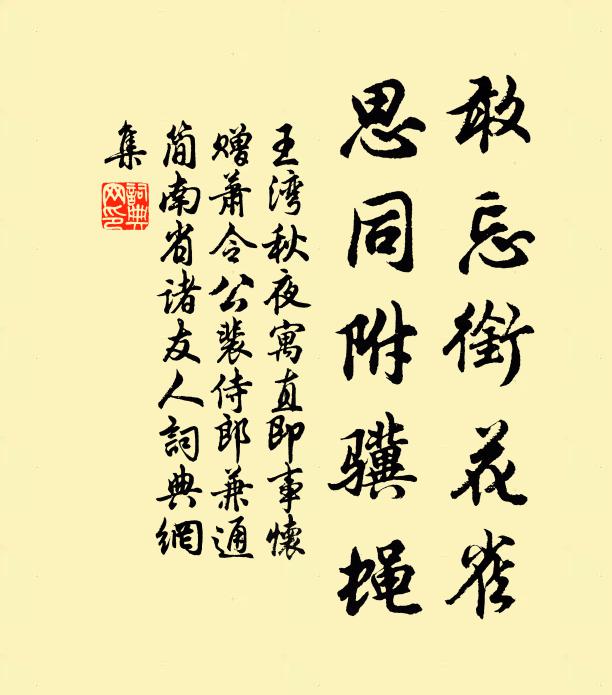 敢忘銜花雀
思同附骥蝇
王湾秋夜寓直即事懷
赠萧令公裴侍郎兼通
简南省诸友人詞典網
集
詞典
网印